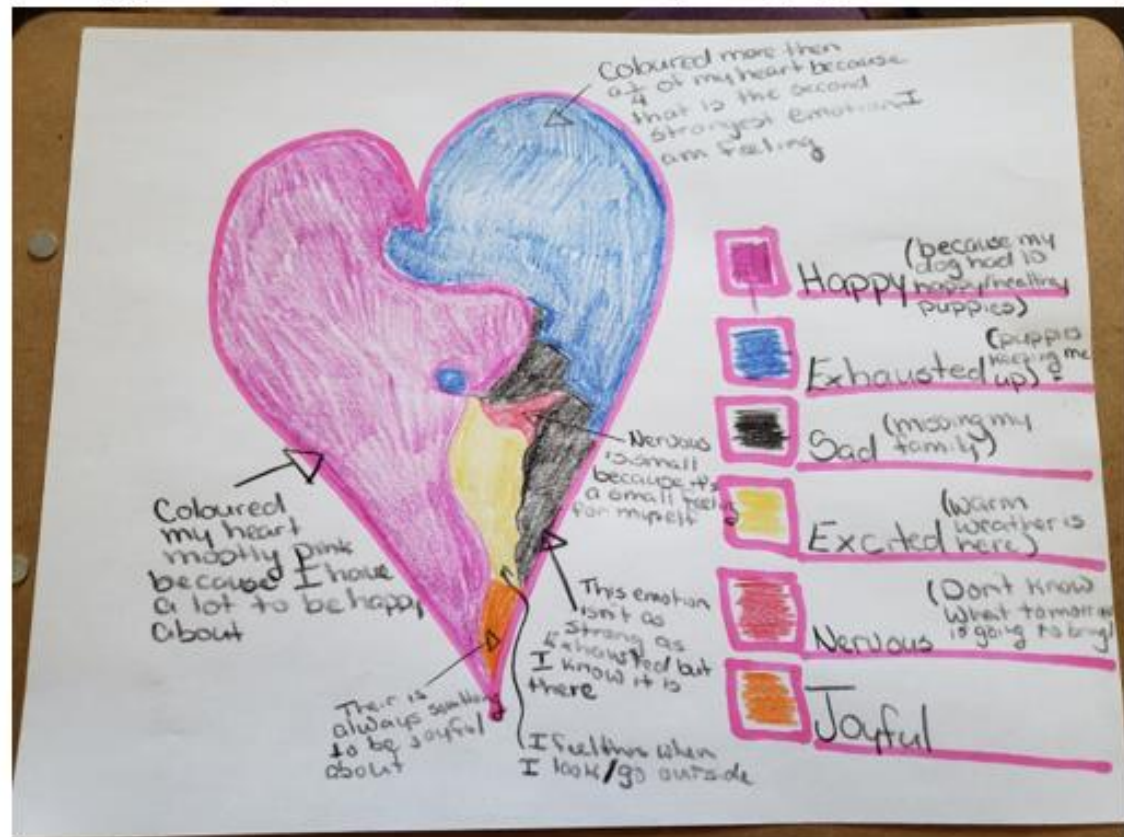 Coloured more then
a 1/4 of my heart because
that is the second
strongest emotion I
am feeling
Happy (because my
dog had 10
happy/healthy
puppies)
Exhausted (puppies
keeping me
up)
Sad (missing my
family)
Excited (warm
weather is
here)
Nervous (Don't know
what tomorrow
is going to bring)
Joyful
Nervous
is small
because its
a small feeling
for myself
Coloured
my heart
mostly pink
because I have
a lot to be happy
about
This emotion
isn't as
strong as
Exhausted but
I know it is
there
Their is
always
to be Joyful
about
I feel this when
I look/go outside